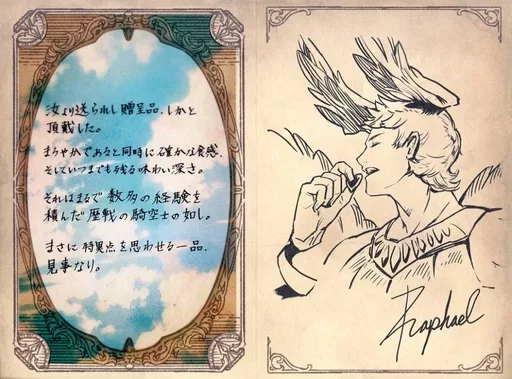 汝より送られし贈呈品、しかと
頂戴した。
まろやかであると同時に確かな食感、
そしていつまでも残る味わい深さ。
それはまるで数多の経験を
積んだ歴戦の騎空士の如し。
まさに特異点を思わせる一品、
見事なり。
Raphael